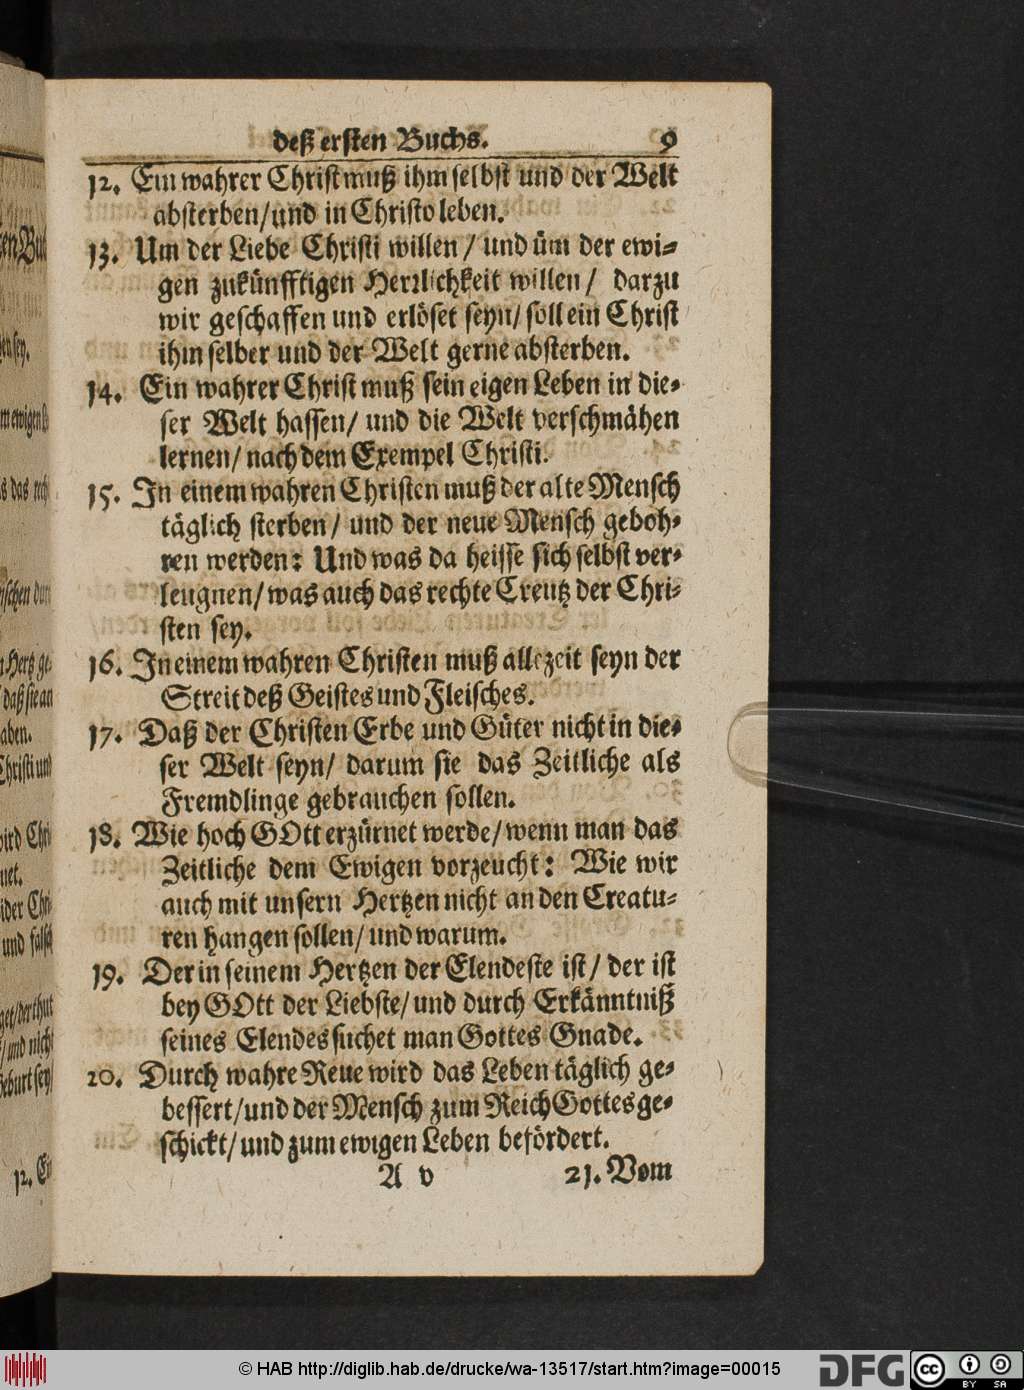 deß ersten Buchs. 9
12. Ein wahrer Christ muß ihm selbst und der Welt
absterben/und in Christo leben.
13. Um der Liebe Christi willen / und üm der ewi-
gen zukünfftigen Herrlichkeit willen / darzu
wir geschaffen und erlöset seyn/ soll ein Christ
ihm selber und der Welt gerne absterben.
14. Ein wahrer Christ muß sein eigen Leben in die-
ser Welt hassen/ und die Welt verschmähen
lernen/ nach dem Exempel Christi.
15. In einem wahren Christen muß der alte Mensch
täglich sterben/ und der neue Mensch geboh-
ren werden: Und was da heisse sich selbst ver-
leugnen/ was auch das rechte Creutz der Chri-
sten sey.
16. In einem wahren Christen muß allezeit seyn der
Streit deß Geistes und Fleisches.
17. Daß der Christen Erbe und Güter nicht in die-
ser Welt seyn/ darum sie das Zeitliche als
Fremdlinge gebrauchen sollen.
18. Wie hoch GOtt erzürnet werde/ wenn man das
Zeitliche dem Ewigen vorzeucht: Wie wir
auch mit unsern Hertzen nicht an den Creatu-
ren hangen sollen/ und warum.
19. Der in seinem Hertzen der Elendeste ist/ der ist
bey GOtt der Liebste/ und durch Erkänntniß
seines Elendes suchet man Gottes Gnade.
20. Durch wahre Reue wird das Leben täglich ge-
bessert/und der Mensch zum Reich Gottes ge-
schickt/ und zum ewigen Leben befördert.
A v 21. Vom
© HAB http://diglib.hab.de/drucke/wa-13517/start.htm?image=00015
DFG
cc BY SA